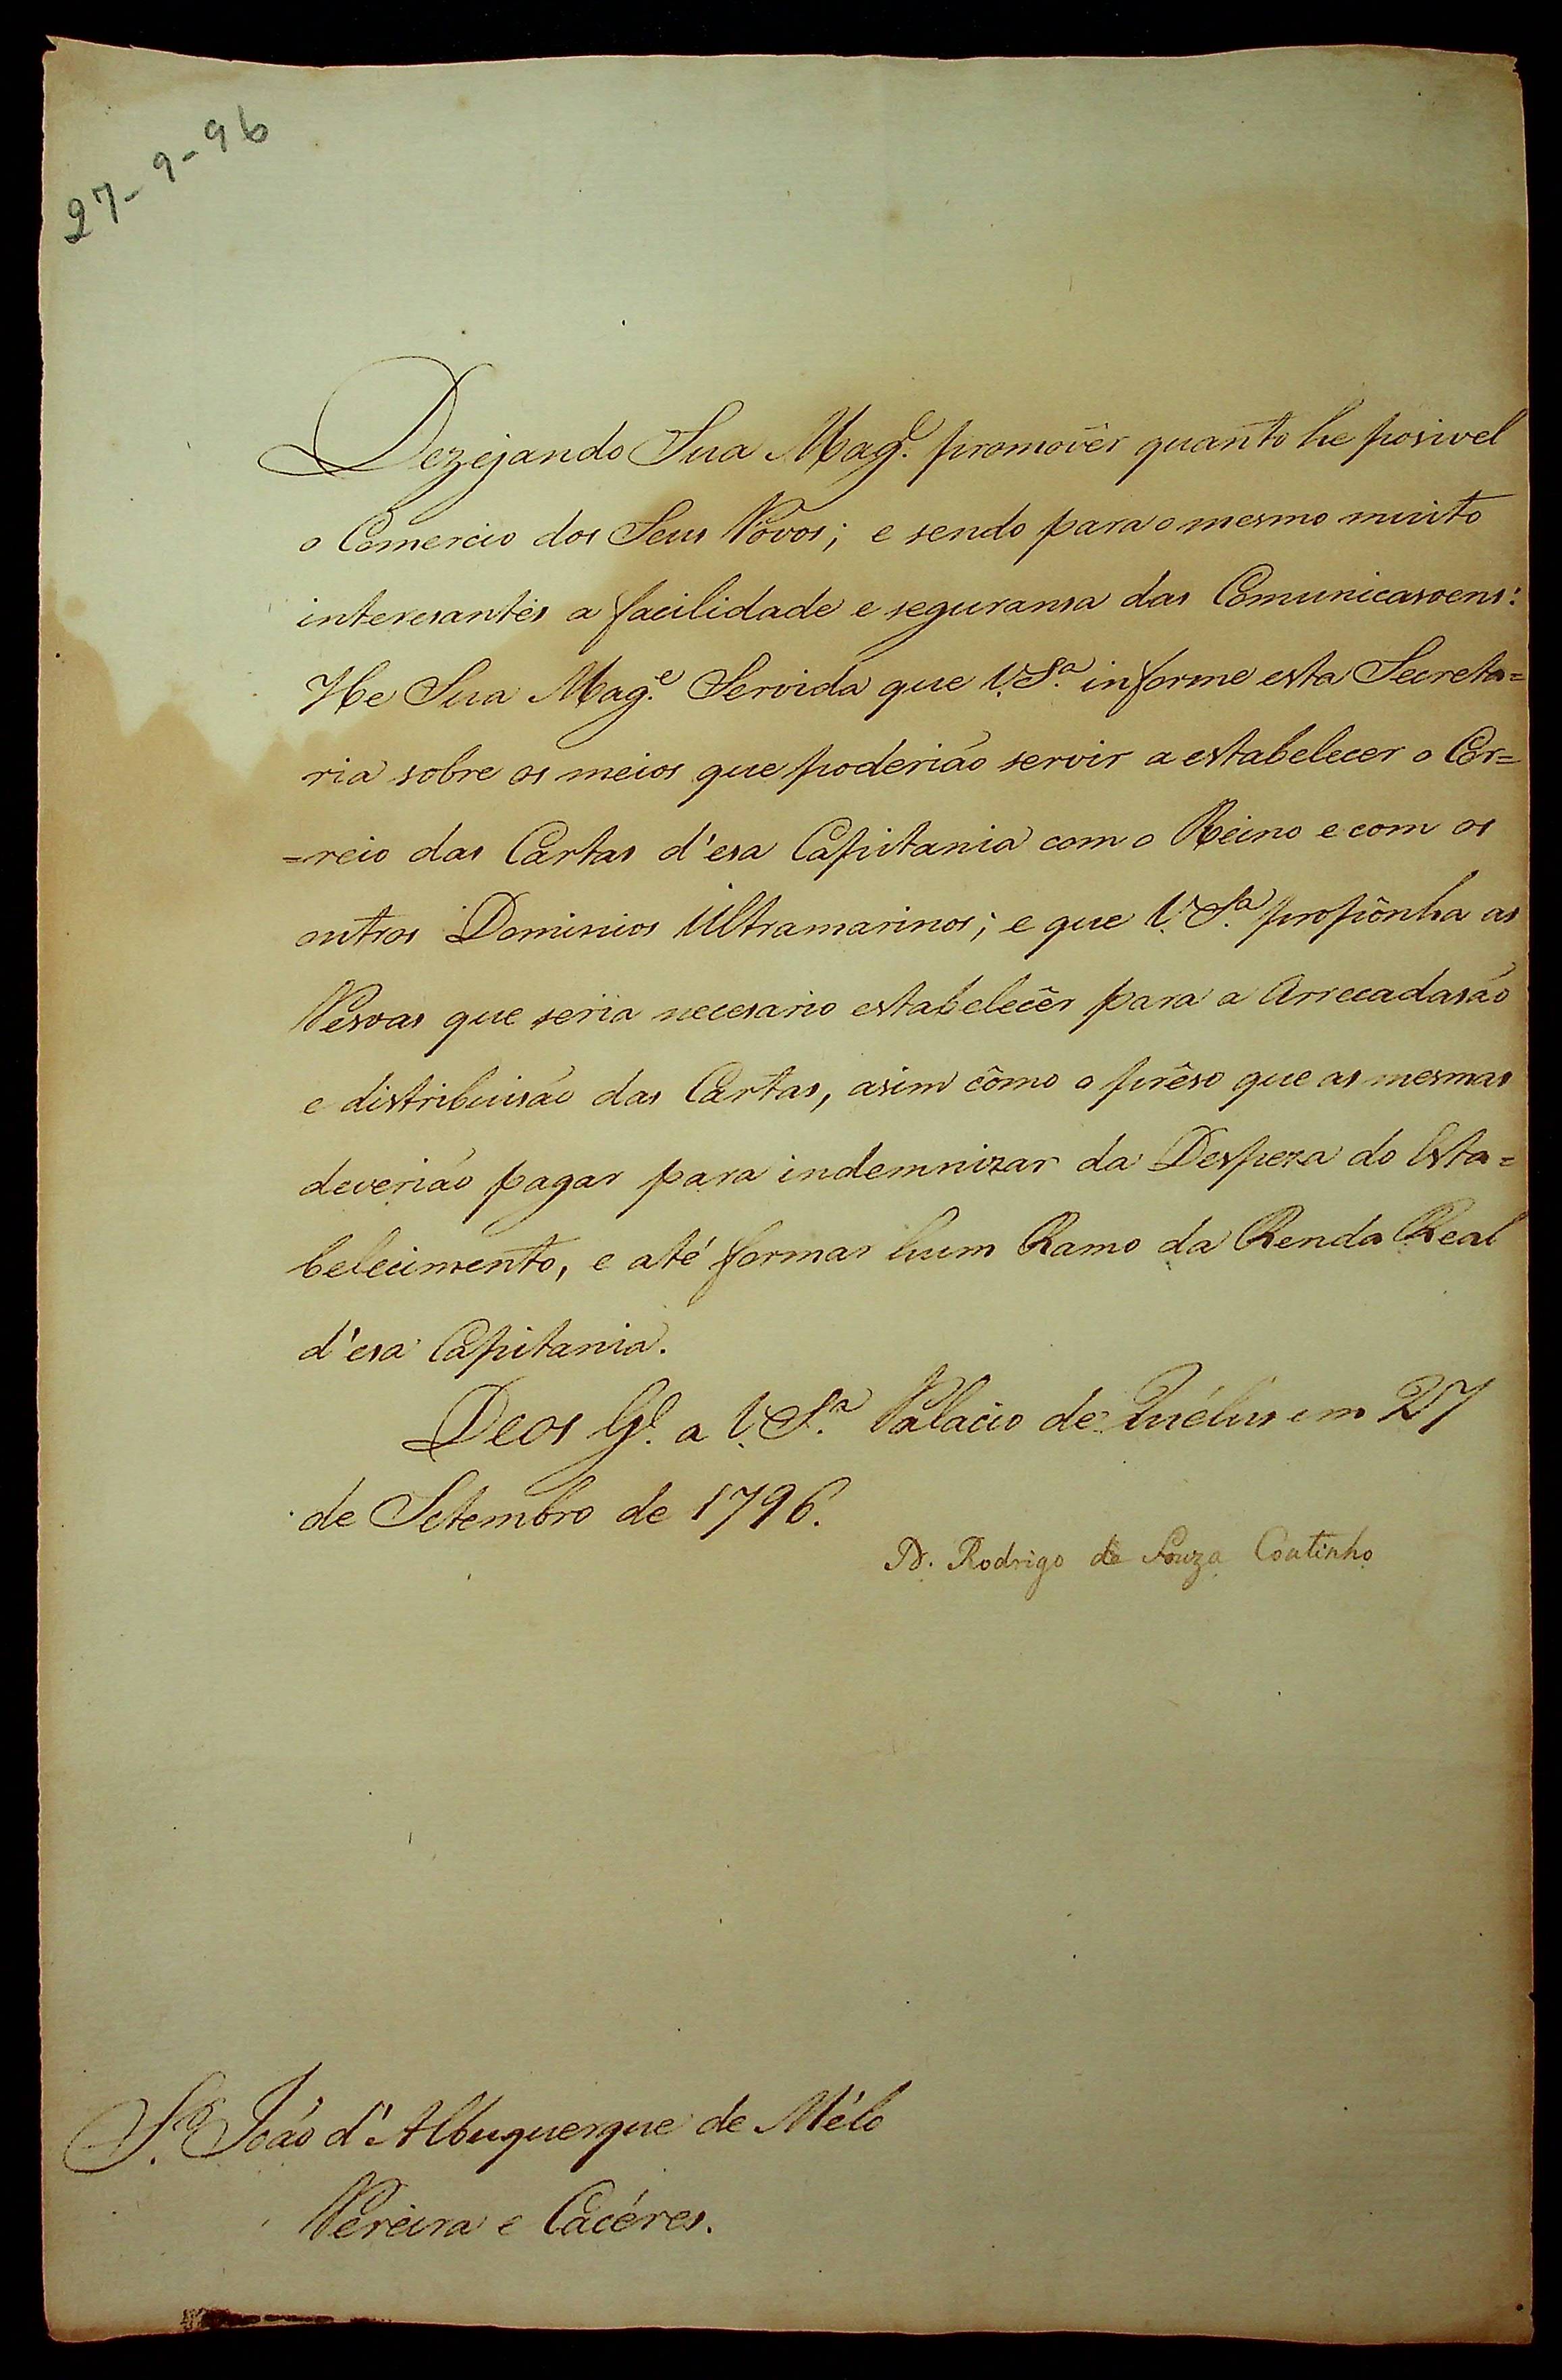 27-9-96
Dezejando Sua Mag.e promovêr quanto he posivel
o Comercio dos Seus Povos; e sendo para o mesmo muito
interesantes a facilidade e seguransa das Comunicasoens:
He Sua Mag.e Servida que V. S.a informe esta Secreta=
ria sobre os meios que poderião servir a estabelecer o Cor=
=reio das Cartas d'esa Capitania com o Reino e com os
outros Dominios Ultramarinos; e que V. S.a propônha as
Pesoas que sería necesario estabelecêr para a Arrecadasão
e distribuisão das Cartas, asim cômo o prêso que as mesmas
deverião pagar para indemnizar da Despeza do Esta=
belecimento, e até formar hum Ramo da Renda Real
d'esa Capitania.
Deos G.e a V. S.a Palacio de Quélus em 27
de Setembro de 1796.
D. Rodrigo de Souza Coutinho
S.r João d'Albuquerque de Mélo
Pereira e Cacéres.